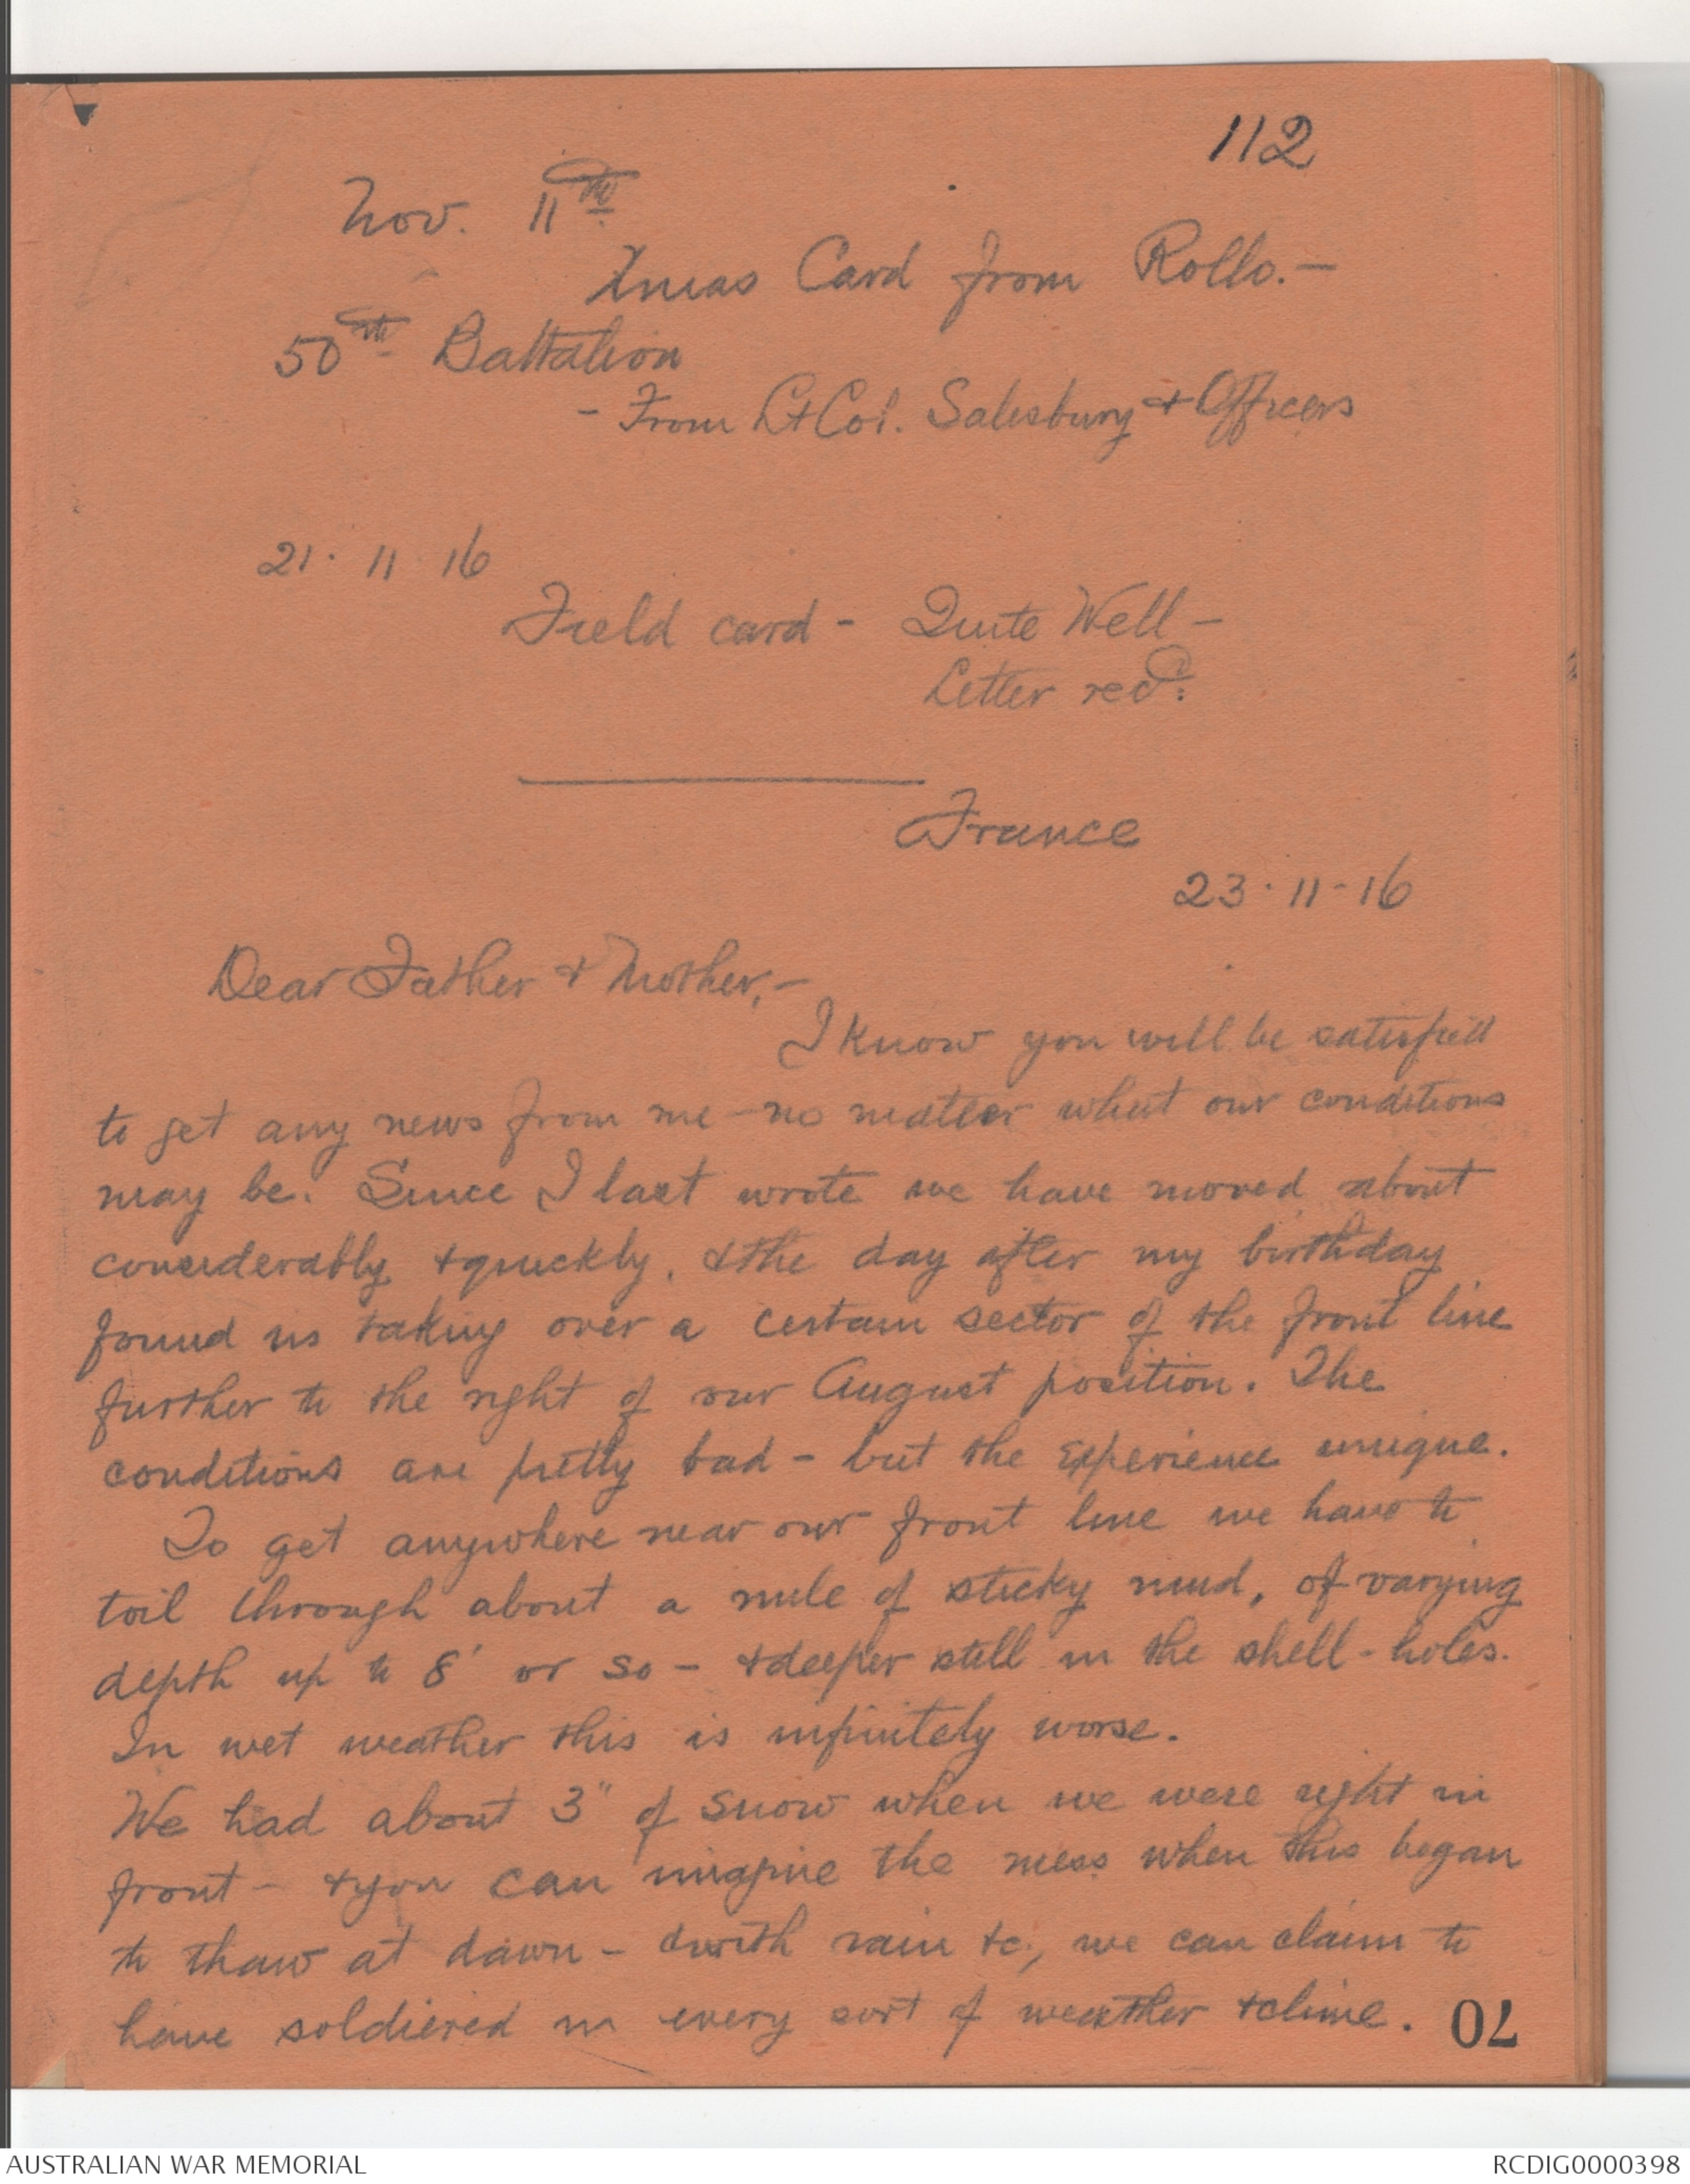 112
Nov. 11th
Xmas Card from Rollo. -
50th Battalion
- From Lt Col. Salisbury & Officers
21. 11 16
Field card - Quite Well -
Letter recd.
France
23. 11-16
Dear Father & Mother, -
I know you will be satisfied
to get any news from me - no matter what our conditions
may be. Since I last wrote we have moved about
considerably & quickly, & the day after my birthday
found us taking over a certain sector of the front line
further to the right of our August position. The
conditions are pretty bad - but the experience unique.
To get anywhere near our front line we have to
toil through about a mile of sticky mud, of varying
depth up to 8' or so - & deeper still in the shell-holes.
In wet weather this is infinitely worse.
We had about 3" of snow when we were right in
front - & you can imagine the mess when this began
to thaw at dawn - & with rain &c; we can claim to
have soldiered in every sort of weather & clime.
70
AUSTRALIAN WAR MEMORIAL
RCDIG0000398